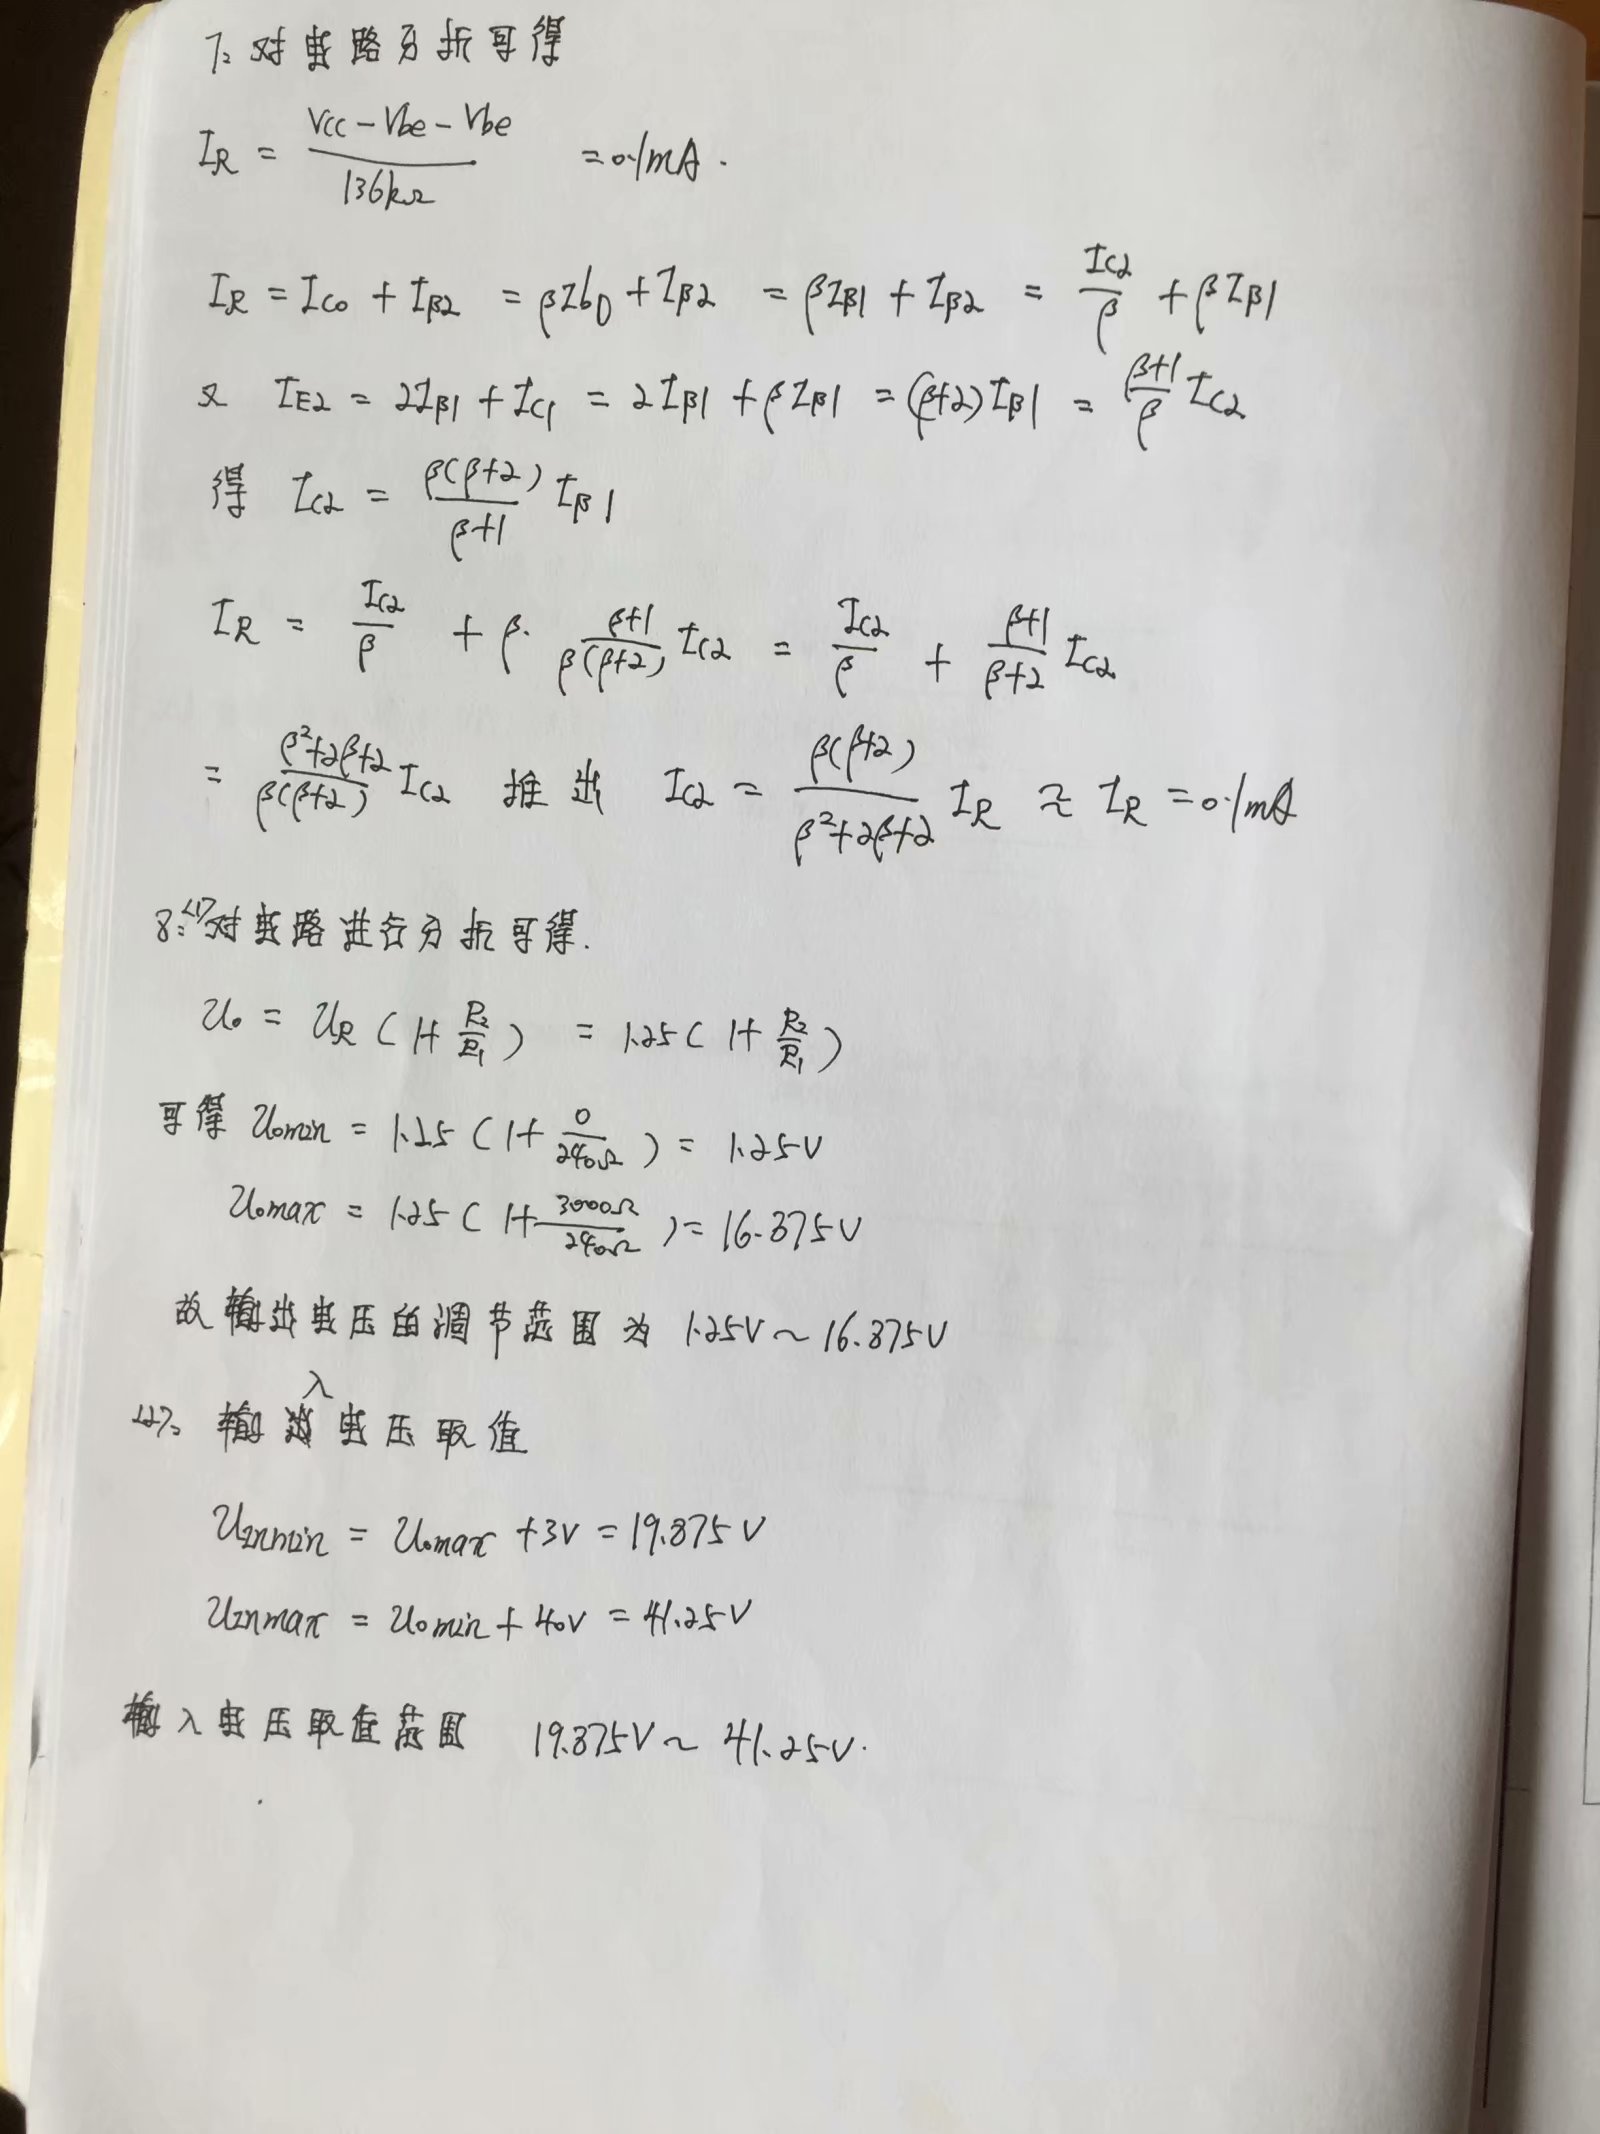 7: 对电路分析可得
I_R = (Vcc - Vbe - Vbe)/136kΩ = 0.1mA.
I_R = I_C0 + I_β2 = βI_b0 + I_β2 = βI_β1 + I_β2 = I_C2/β + βI_β1
又 I_E2 = 2I_β1 + I_C1 = 2I_β1 + βI_β1 = (β+2)I_β1 = (β+1)/β I_C2
得 I_C2 = β(β+2)/(β+1) I_β1
I_R = I_C2/β + β· (β+1)/(β(β+2)) I_C2 = I_C2/β + (β+1)/(β+2) I_C2
= (β²+2β+2)/(β(β+2)) I_C2 推出 I_C2 = β(β+2)/(β²+2β+2) I_R ≈ I_R = 0.1mA
8: <1>对电路进行分析可得.
U_o = U_R (1+ R₂/R₁) = 1.25 (1+ R₂/R₁)
可得 U_omin = 1.25 (1+ 0/240Ω) = 1.25V
U_omax = 1.25 (1+ 3000Ω/240Ω) = 16.875V
故输出电压的调节范围为 1.25V ~ 16.875V
<2>: 输入电压取值
U_Inmin = U_omax + 3V = 19.875V
U_Inmax = U_omin + 40V = 41.25V
输入电压取值范围 19.875V ~ 41.25V.